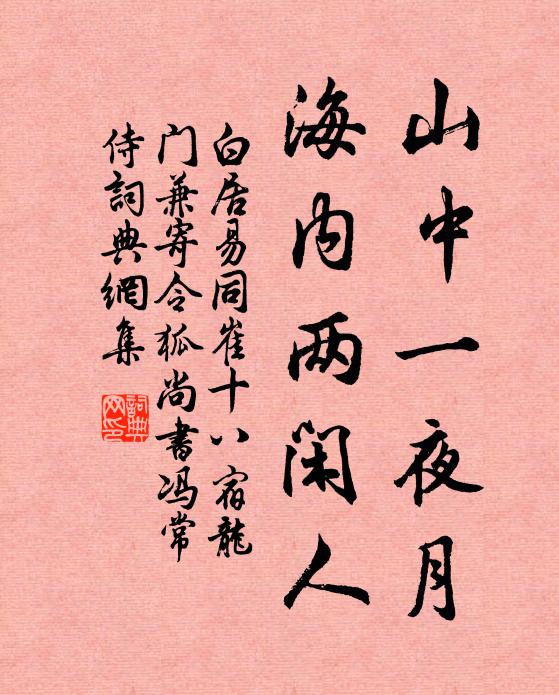 山中一夜月
海内两闲人
白居易同崔十八宿龍
门兼寄令狐尚書冯常
侍詞典網集
詞典
网印